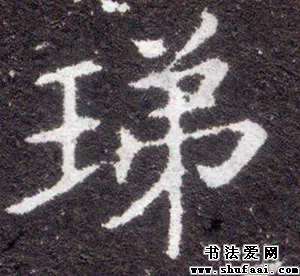 珶
书法爱网
www.shufaai.com